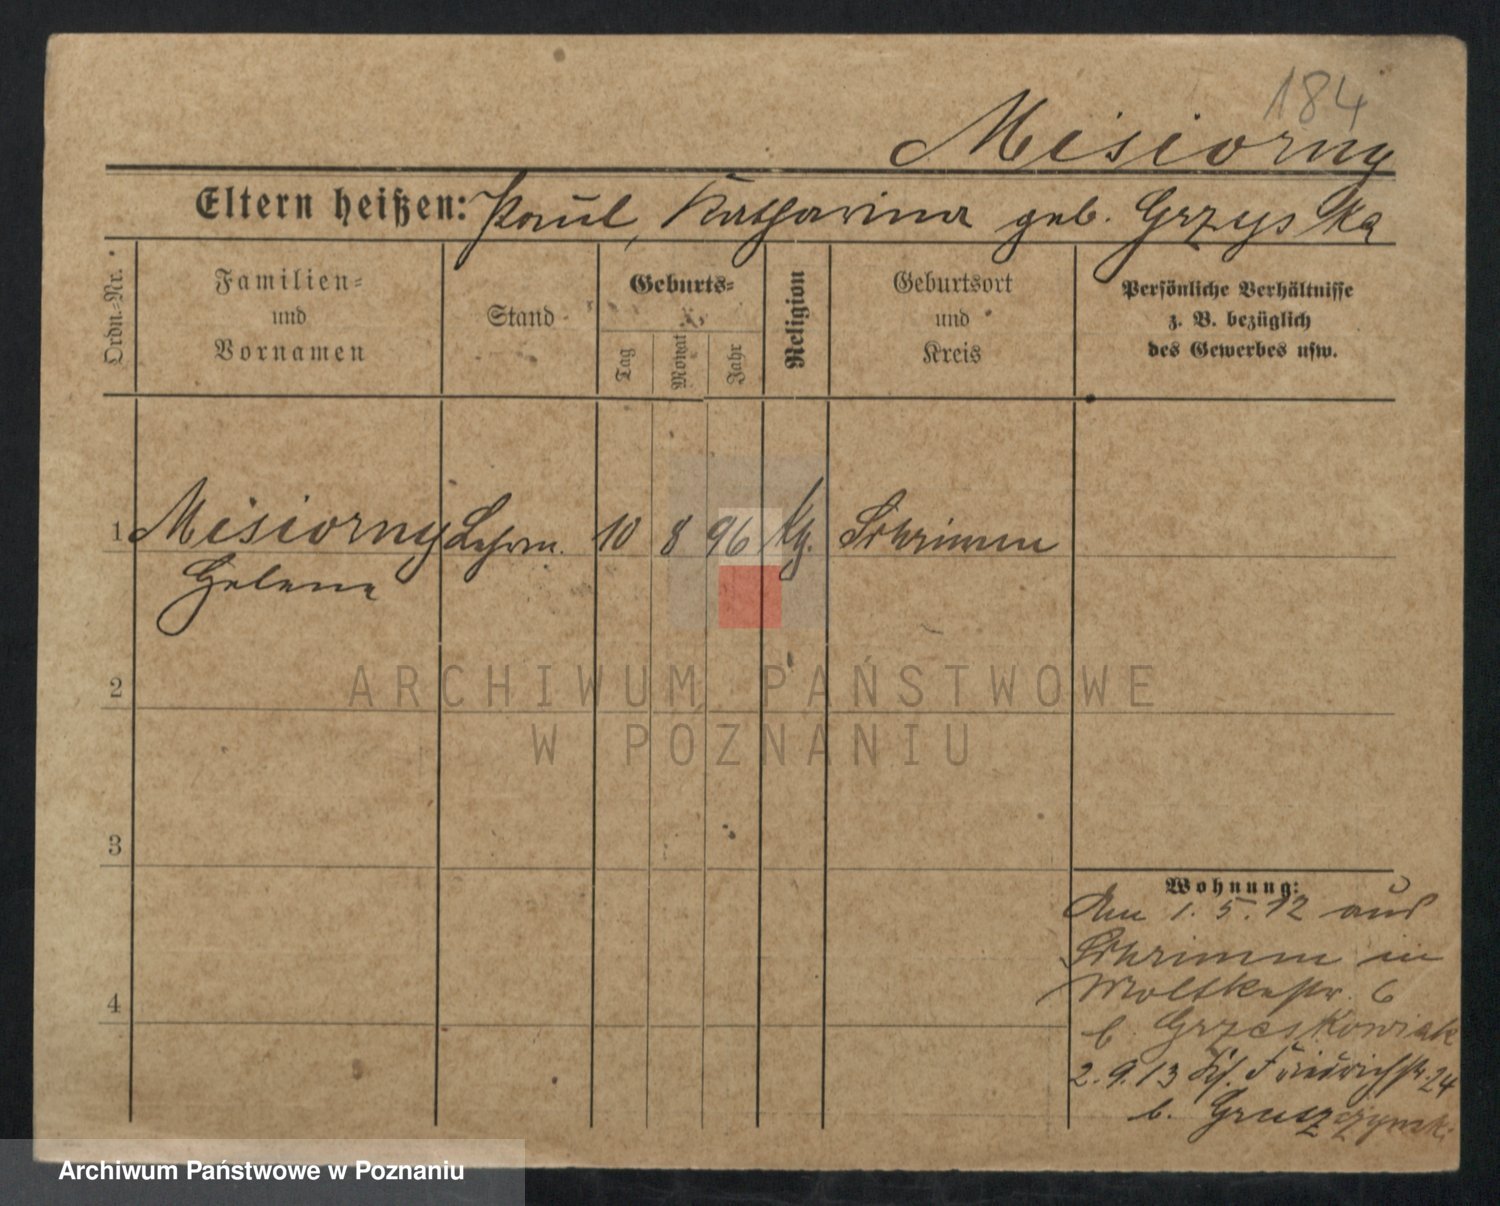 184
Misiorny
Eltern heißen: Paul, Katharina geb. Grzyska
Ordn.-Nr.
Familien-
und
Vornamen
Stand
Geburts-
Tag
Monat
Jahr
Religion
Geburtsort
und
Kreis
Persönliche Verhältnisse
z. B. bezüglich
des Gewerbes usw.
1 Misiorny Lehrm. 10 8 96 kg. Schrimm
Helena
2
3
4
Wohnung:
Am 1. 5. 12 aus
Schrimm in
Moltkestr. 6
b. Grzeskowiak
2. 9. 13 Kf. Friedrichstr. 24
b. Gruszczynski
ARCHIWUM PAŃSTWOWE
W POZNANIU
Archiwum Państwowe w Poznaniu